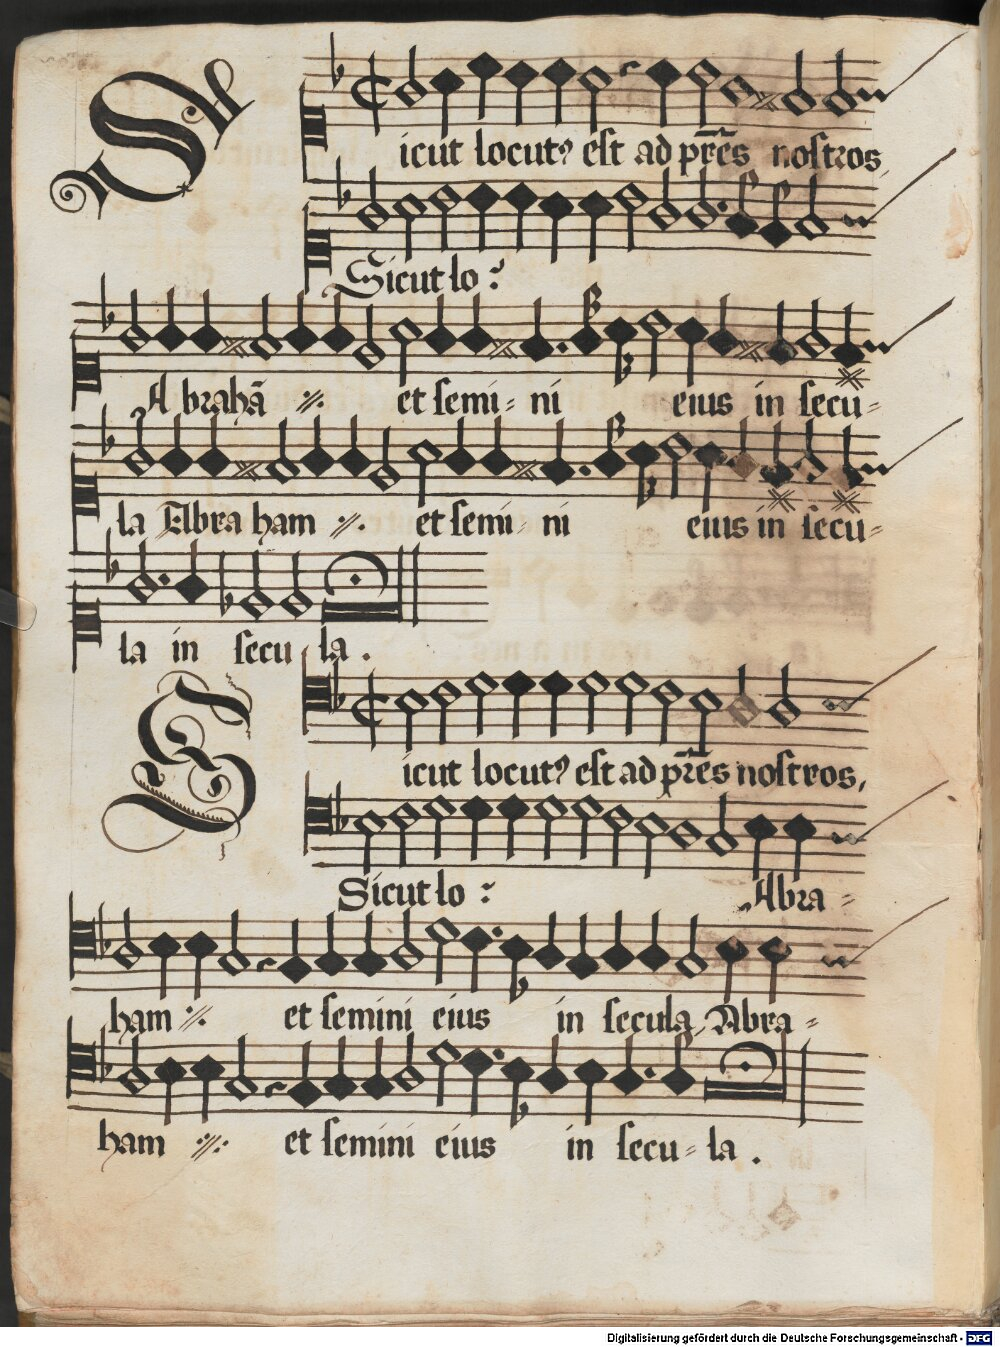 Sicut locutꝰ est ad pr̄es nostros,
Sicut lo:
Abrahā ·//· et semi- ni eius in secu-
la Abraham ·//· et semi- ni eius in secu-
la in secula.
Sicut locutꝰ est ad pr̄es nostros,
Sicut lo: Abra-
ham ·//· et semini eius in secula, Abra-
ham ·//· et semini eius in secu-la.
Digitalisierung gefördert durch die Deutsche Forschungsgemeinschaft - DFG